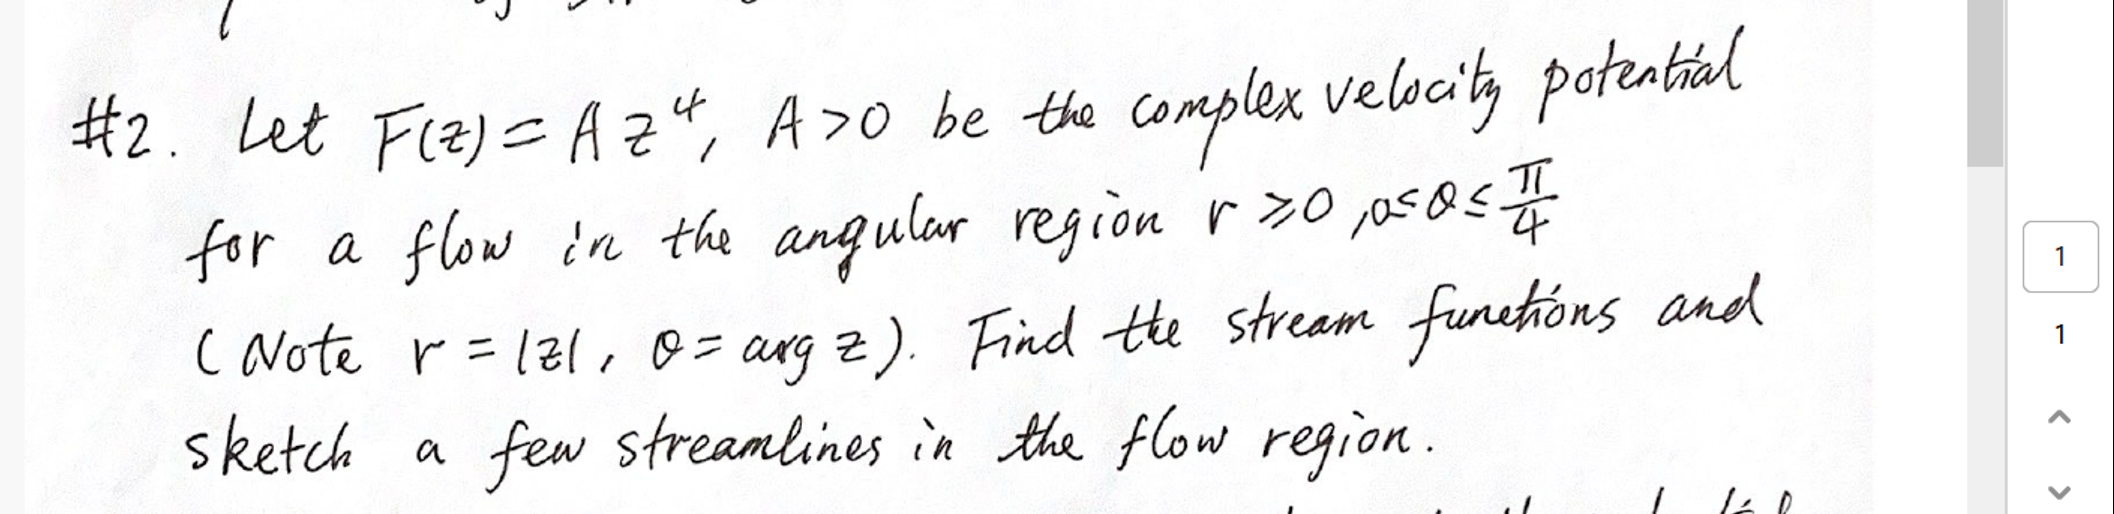 #2. Let F(z) = A z⁴, A > 0 be the complex velocity potential
for a flow in the angular region r ≥ 0, 0 ≤ θ ≤ π/4
(Note r = |z|, θ = arg z). Find the stream functions and
sketch a few streamlines in the flow region.
1
1